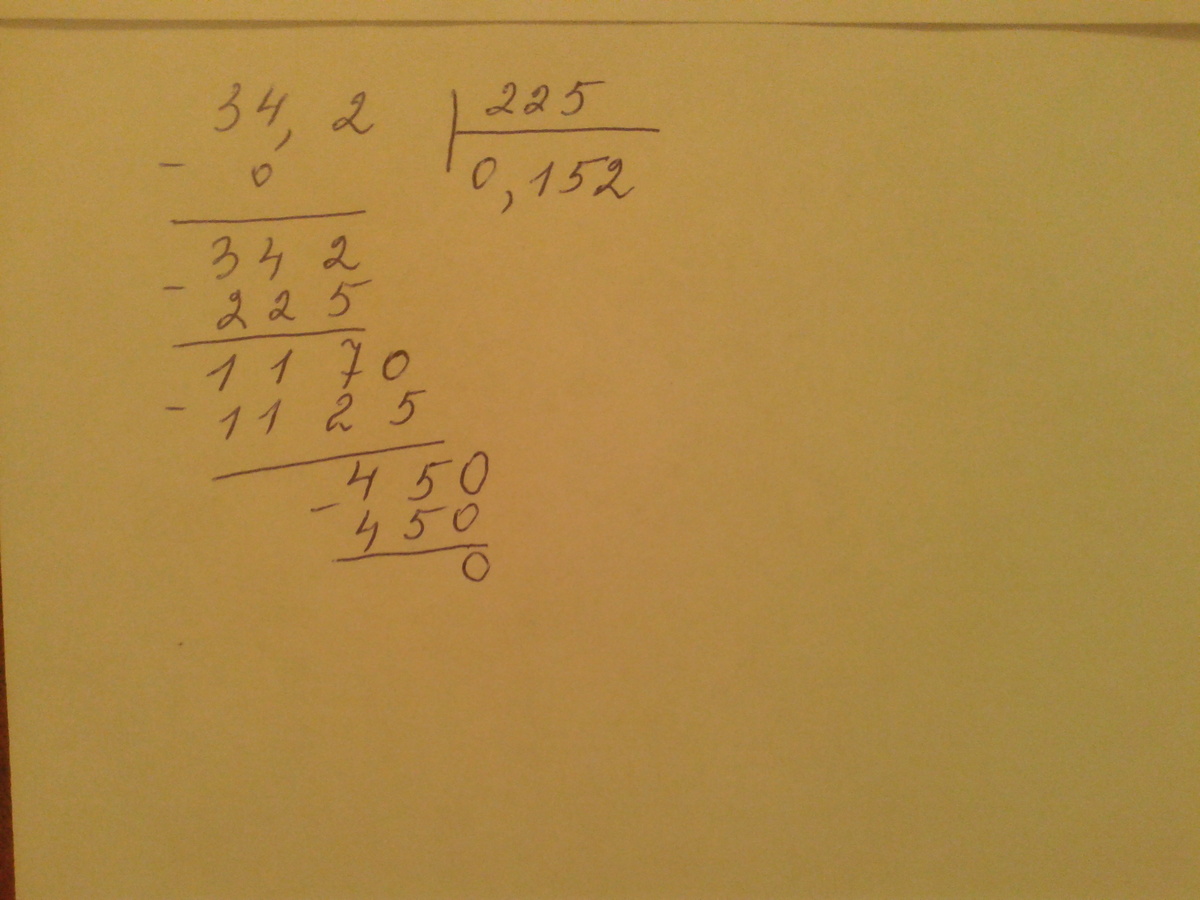 34,2 225
- 0 0,152
342
- 225
1170
- 1125
450
- 450
0